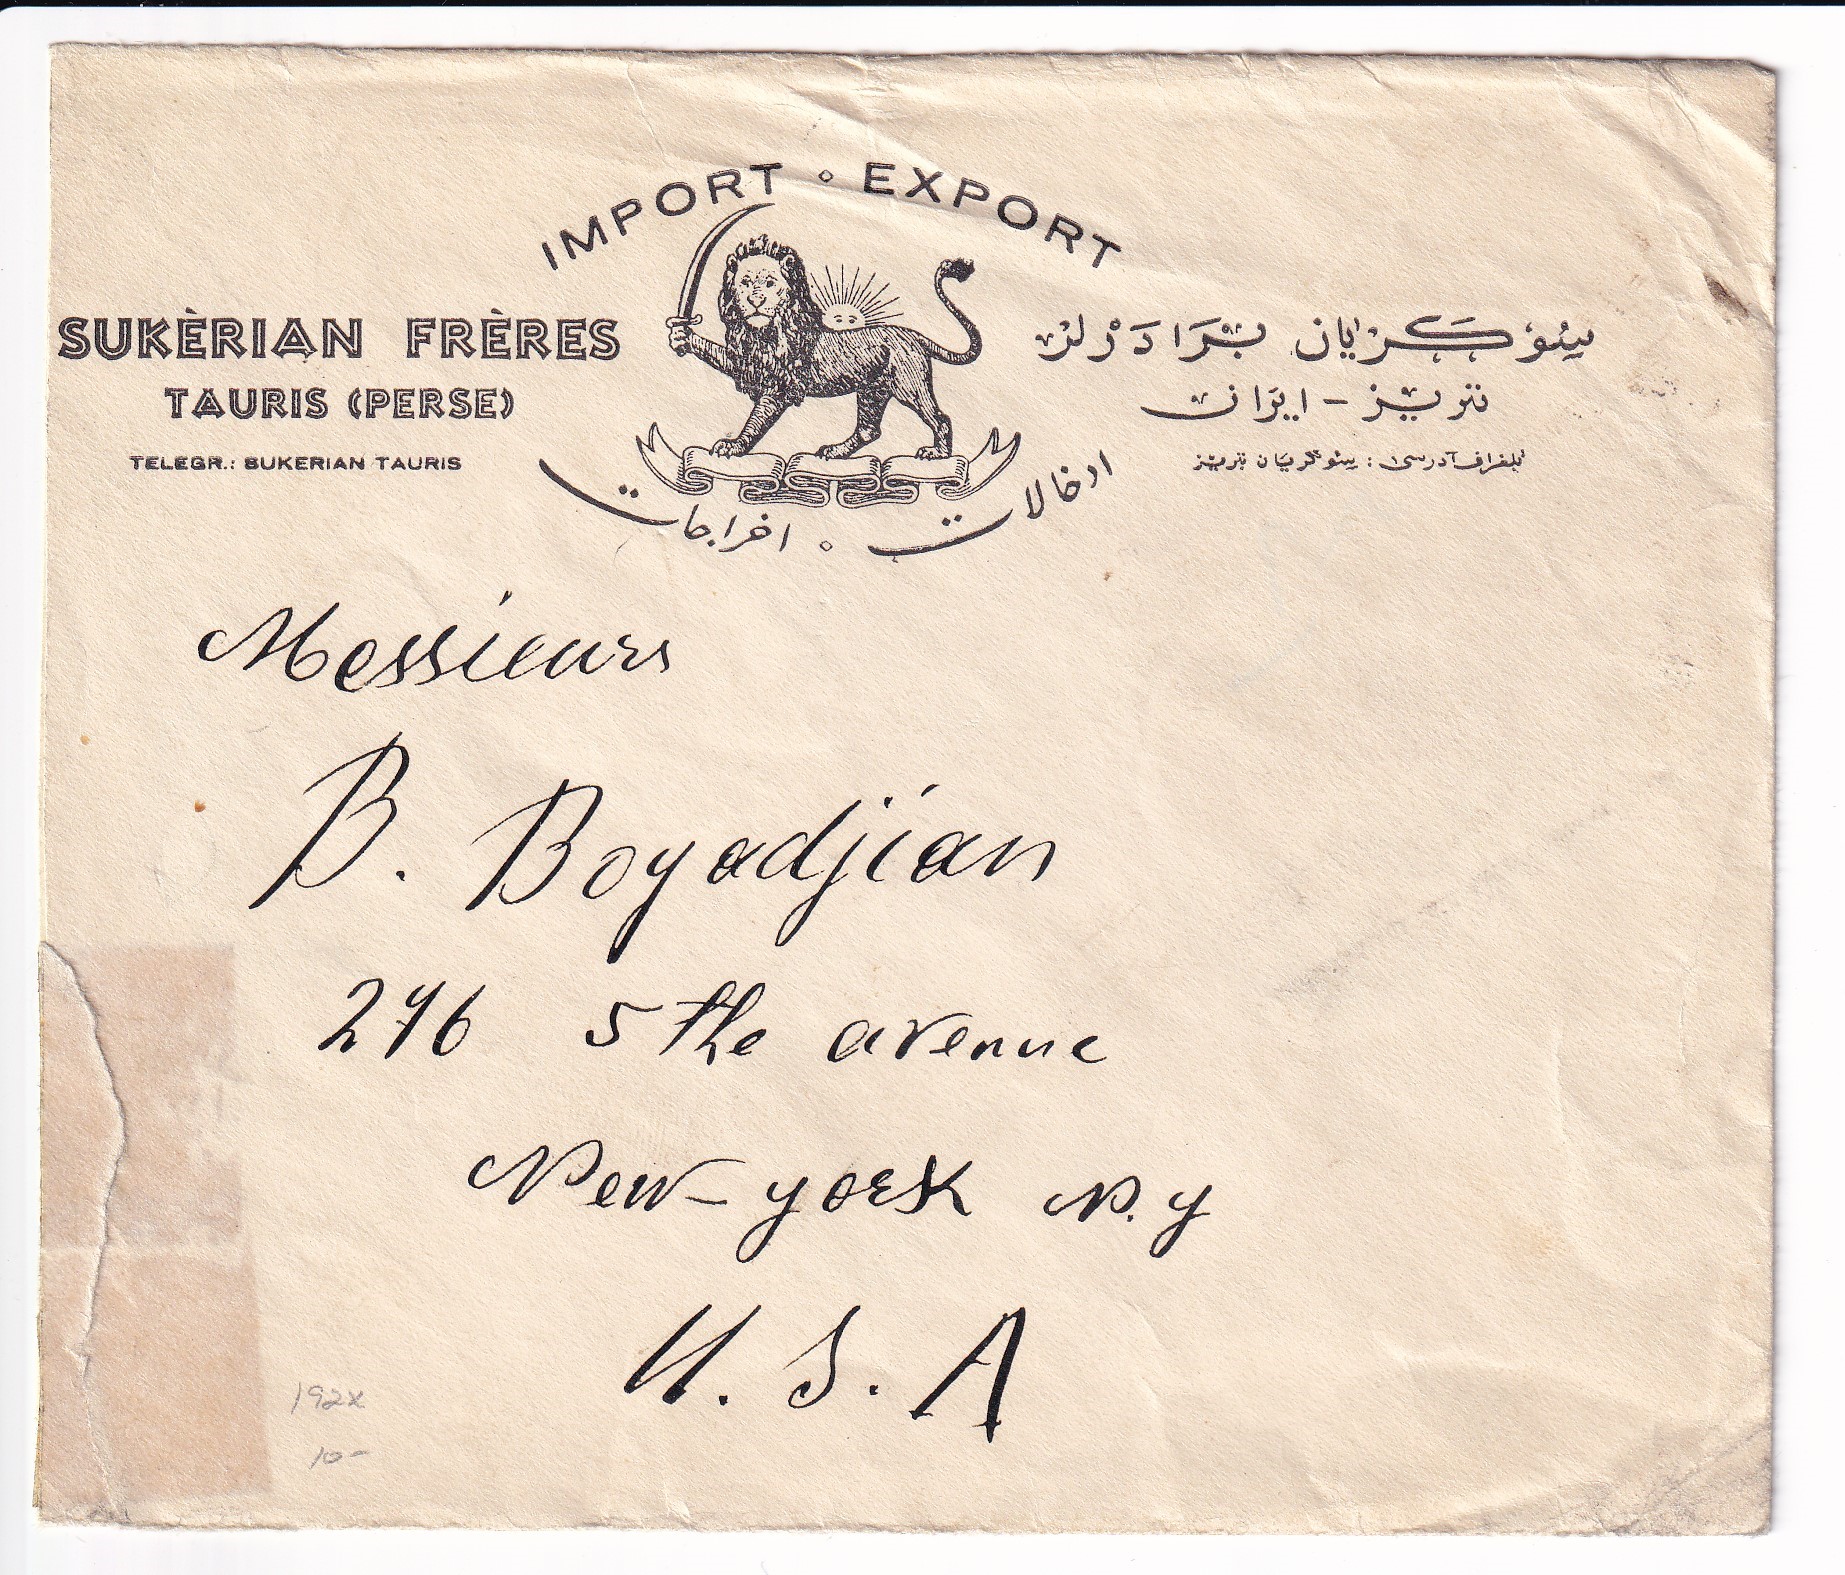 IMPORT ◦ EXPORT
SUKÈRIAN FRÈRES
TAURIS (PERSE)
TELEGR.: SUKERIAN TAURIS
سئوكریان برادرلر
تبریز - ایران
تلغراف آدرسی : سئوكریان تبریز
ادخالات ◦ اخراجات
Messieurs
B. Boyadjian
276 5 the avenue
New-york N.y
U. S. A
192x
10-